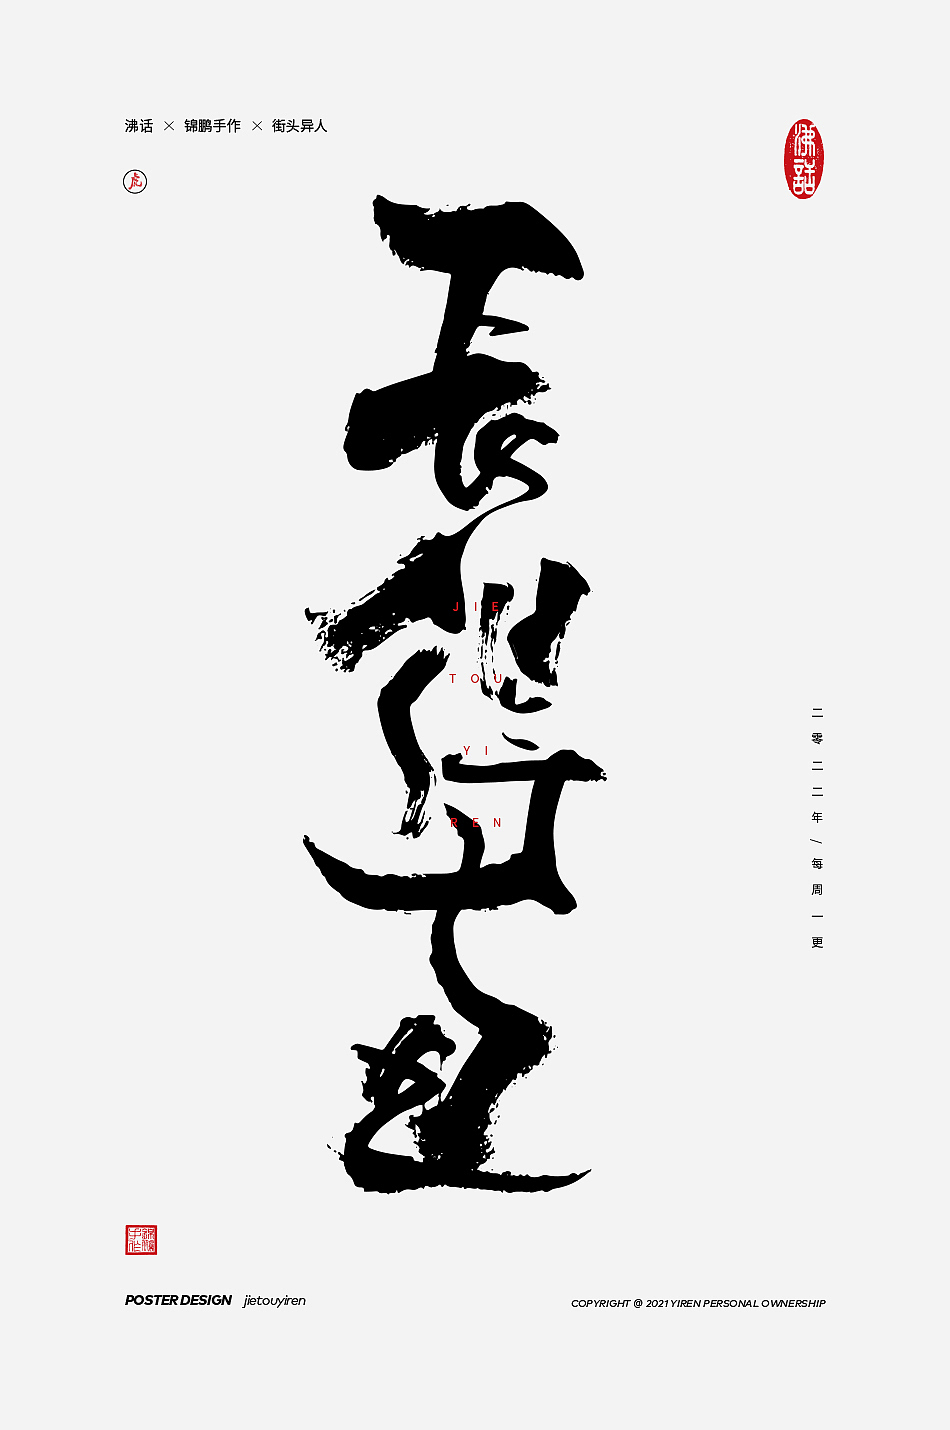 沸话 × 锦鹏手作 × 街头异人
虎
沸話
JIE
TOU
YI
REN
二零二二年/每周一更
錦鵬手作
POSTER DESIGN jietouyiren
COPYRIGHT @ 2021 YIREN PERSONAL OWNERSHIP